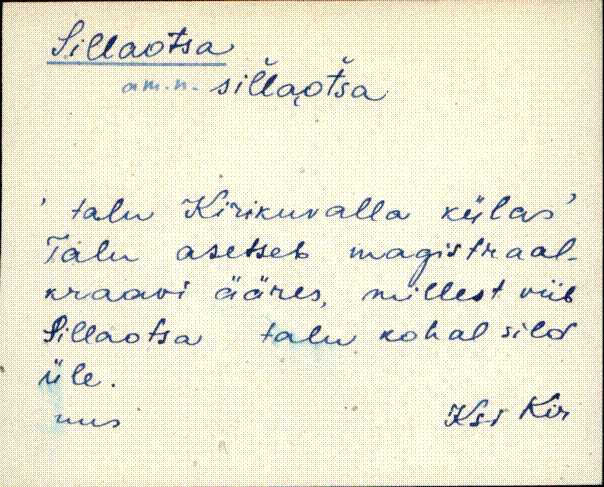 Sillaotsa
am.n. sil̆laot̆sa
' talu Kirikuvalla külas'
Talu asetseb magistraal-
kraavi ääres, millest viib
Sillaotsa talu kohal sild
üle.
Ksi Kir